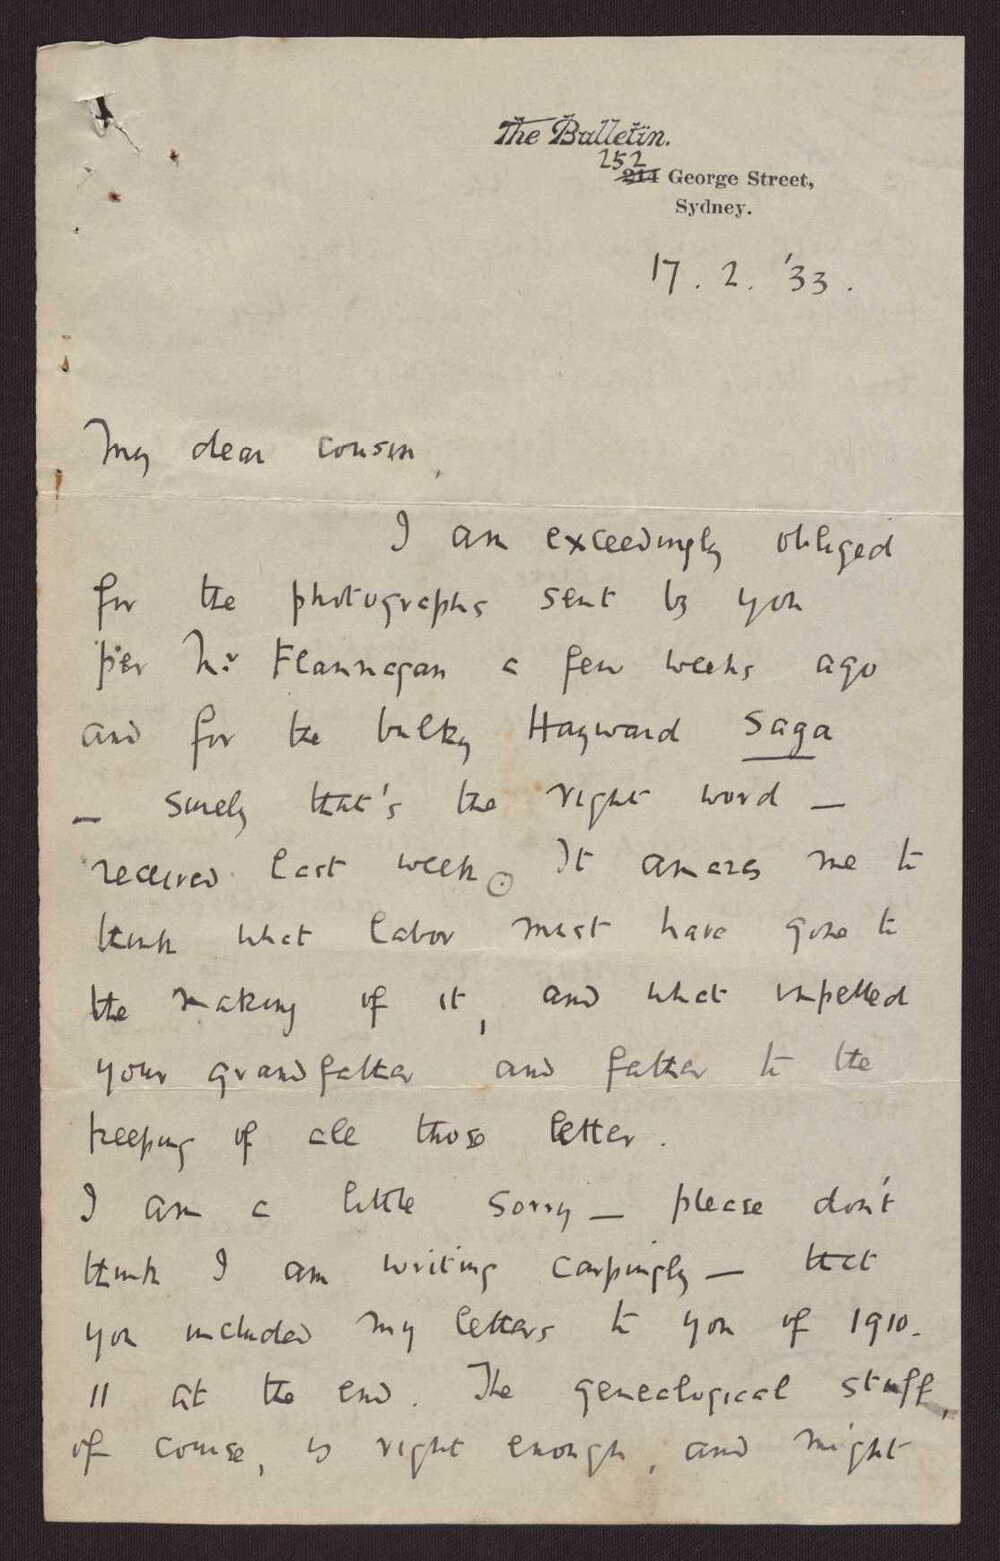 The Bulletin.
252
214 George Street,
Sydney.
17. 2. '33.
My dear cousin,
I am exceedingly obliged
for the photographs sent by you
per Mr Flannagan a few weeks ago
and for the bulky Hayward Saga
— surely that's the right word —
received last week. It amazes me to
think what labor must have gone to
the making of it, and what impelled
your grandfather and father to the
keeping of all those letter.
I am a little sorry — please don't
think I am writing carpingly — that
you included my letters to you of 1910-
11 at the end. The genealogical stuff,
of course, is right enough, and might